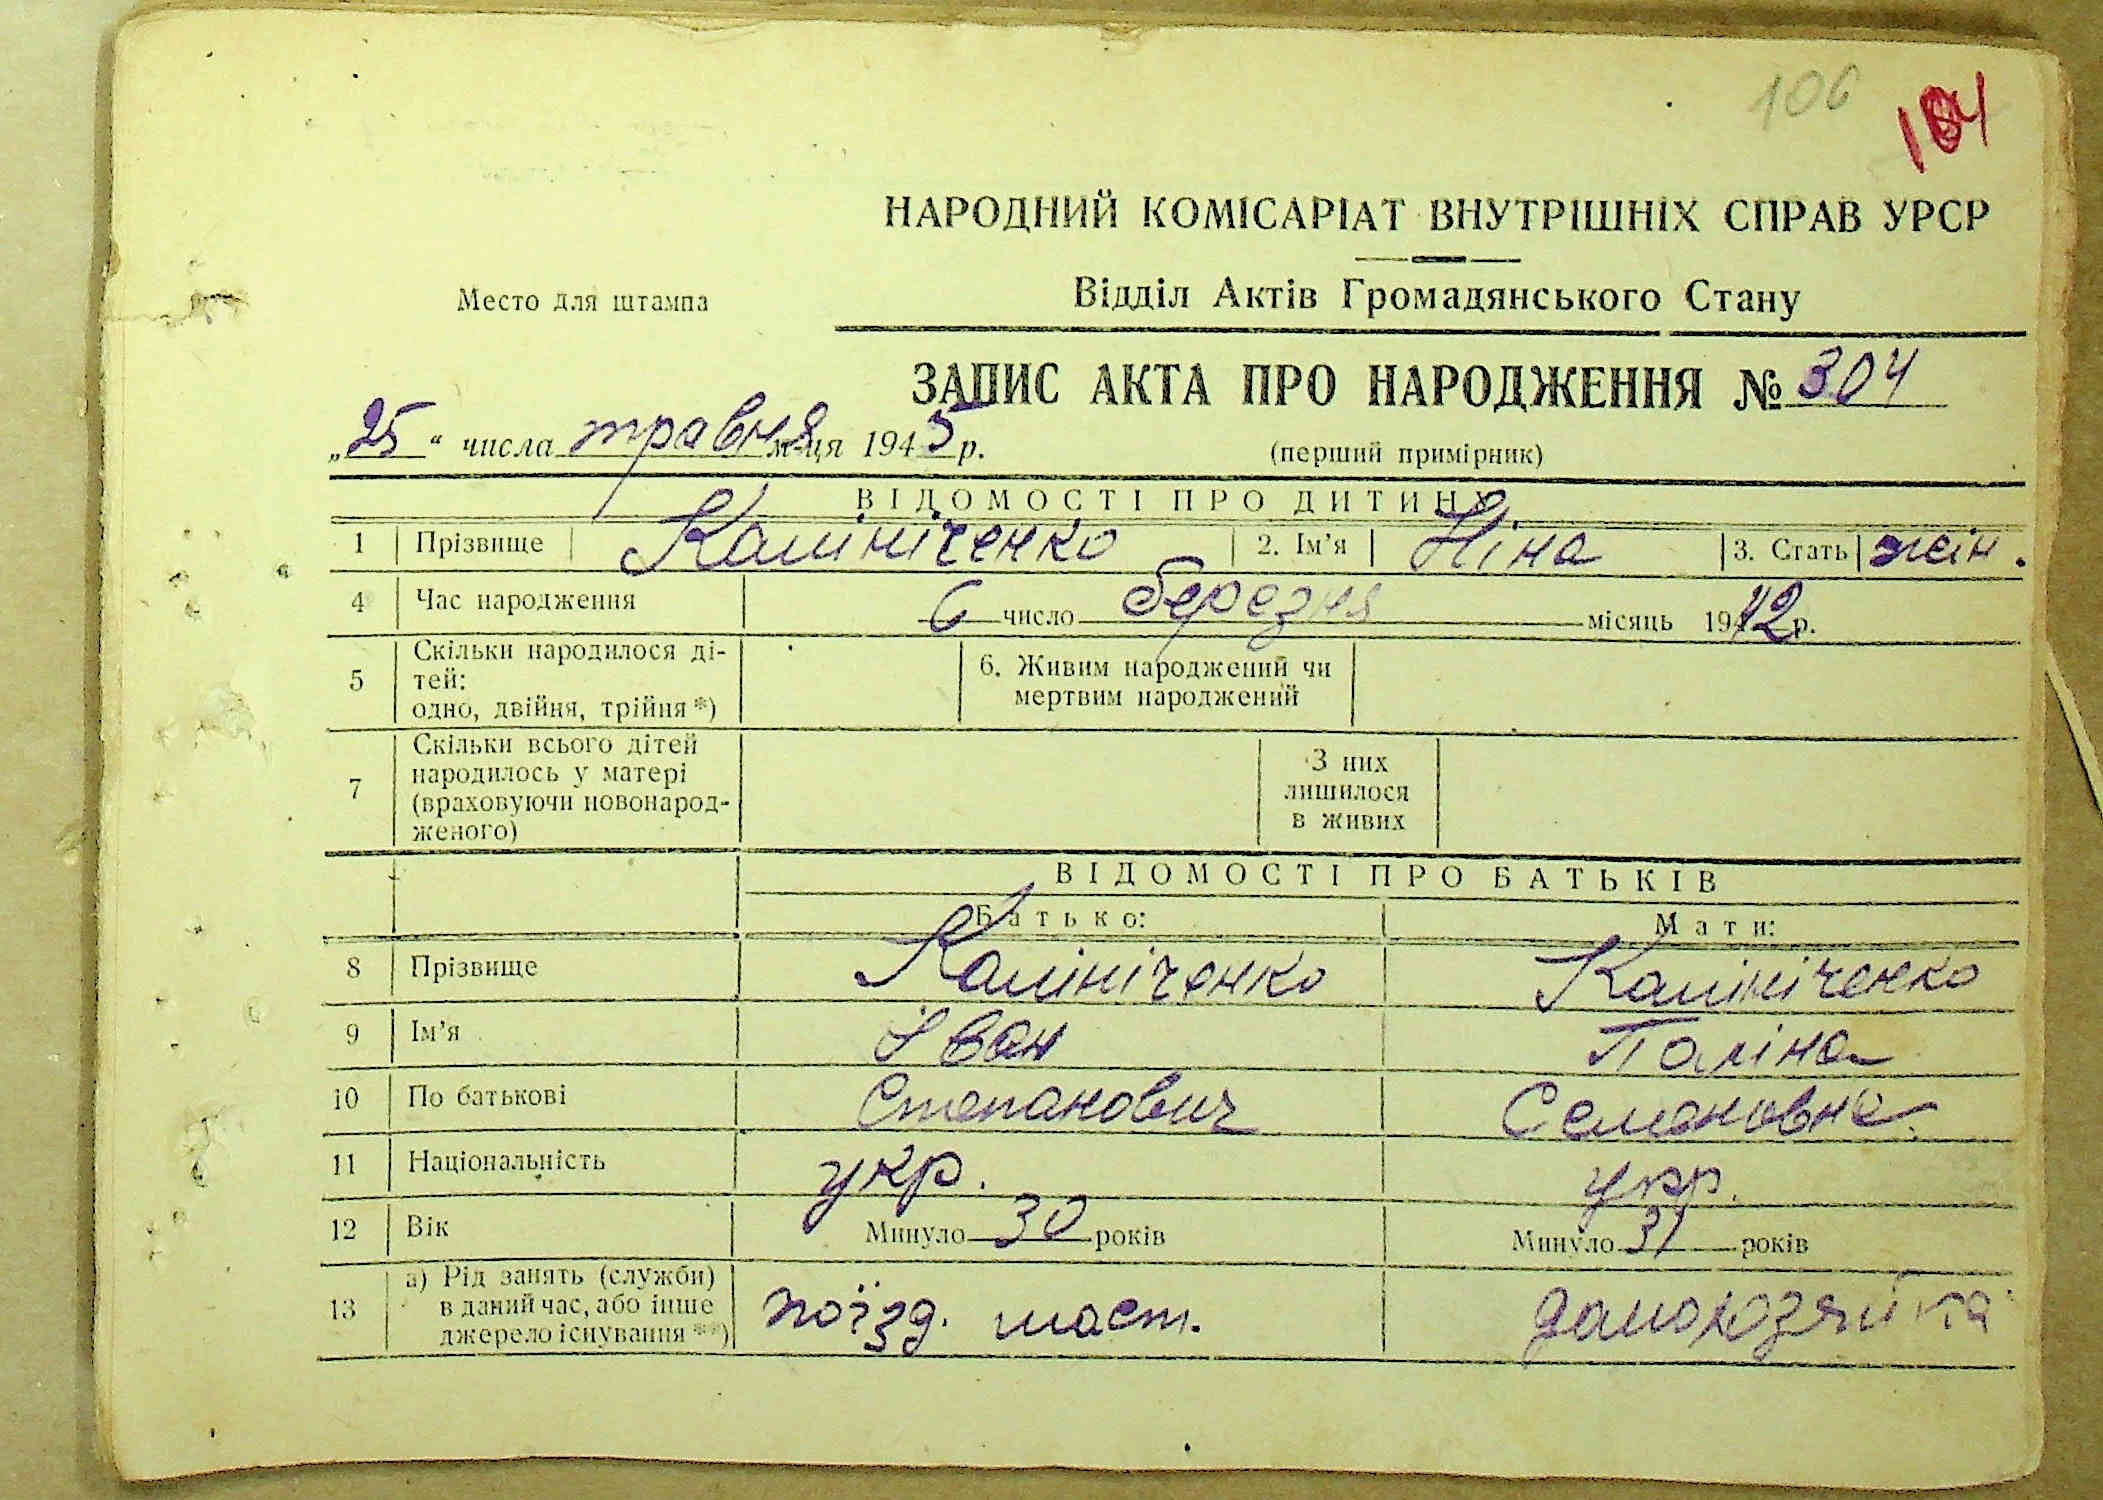 106
104
НАРОДНИЙ КОМІСАРІАТ ВНУТРІШНІХ СПРАВ УРСР
Место для штампа
Відділ Актів Громадянського Стану
ЗАПИС АКТА ПРО НАРОДЖЕННЯ № 304
„25“ числа травня м-ця 1945 р. (перший примірник)
ВІДОМОСТІ ПРО ДИТИНУ
1 Прізвище Калініченко 2. Ім’я Ніна 3. Стать жін.
4 Час народження 6 число березня місяць 1942 р.
5 Скільки народилося ді-
тей:
одно, двійня, трійня *)
6. Живим народжений чи
мертвим народжений
7 Скільки всього дітей
народилось у матері
(враховуючи новонарод-
женого)
З них
лишилося
в живих
ВІДОМОСТІ ПРО БАТЬКІВ
Батько: Мати:
8 Прізвище Калініченко Калініченко
9 Ім’я Іван Паліна
10 По батькові Степанович Семеновна
11 Національність укр. укр.
12 Вік Минуло 30 років Минуло 31 років
13 а) Рід занять (служби)
в даний час, або інше
джерело існування **)
поїзд. маст. домохозяйка